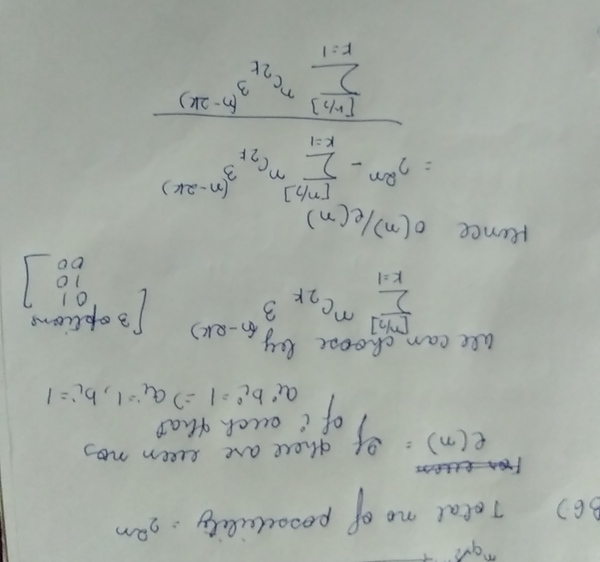 B6) Total no of possibility = 2^2n
e(n) = If there are even nos
of i such that
ai bi = 1 => ai = 1, bi = 1
We can choose by
∑_{k=1}^{[n/2]} nC2k 3^(n-2k) [3 options
01
10
00]
Hence o(n)/e(n)
= 2^2n - ∑_{k=1}^{[n/2]} nC2k 3^(n-2k)
∑_{k=1}^{[n/2]} nC2k 3^(n-2k)